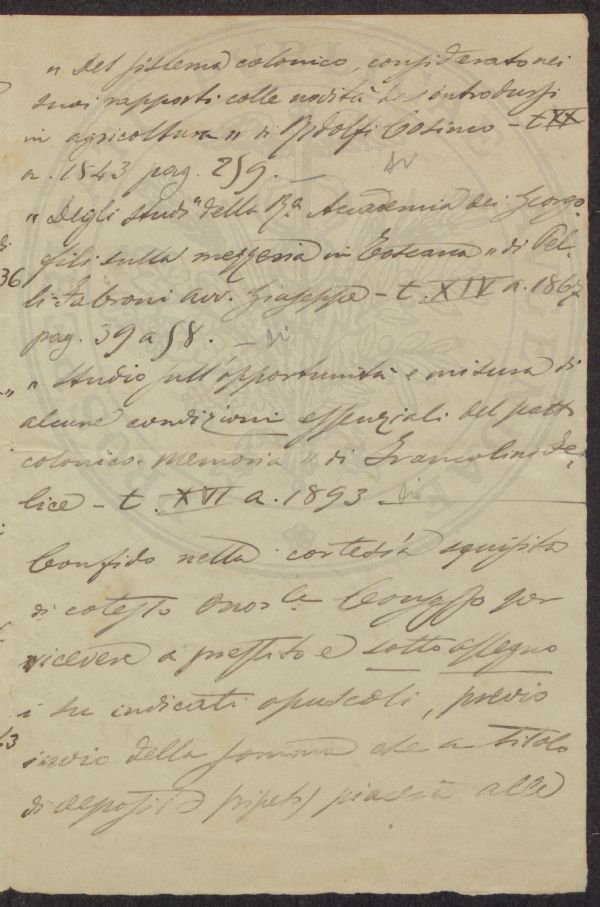 " Del sistema colonico, considerato nei
suoi rapporti colle novità da introdursi
in agricoltura " di Ridolfi Cosimo - t XX
a. 1843 pag. 259. - si
" Degli studi della Rª Accademia dei Georgo-
fili sulla mezzeria in Toscana " di Pel-
li-Fabroni avv. Giuseppe - t. XIV a. 1867
pag. 39 a 58. - si
" Studio sull'opportunità e misura di
alcune condizioni essenziali del patto
colonico. Memoria " di Francolini Fe-
lice - t. XVI a. 1893 si
Confido nella cortesia squisita
di cotesto Onor. Consesso per
ricevere a prestito e sotto assegno
i su indicati opuscoli, previo
invio della somma che a titolo
di deposito piacerà alle